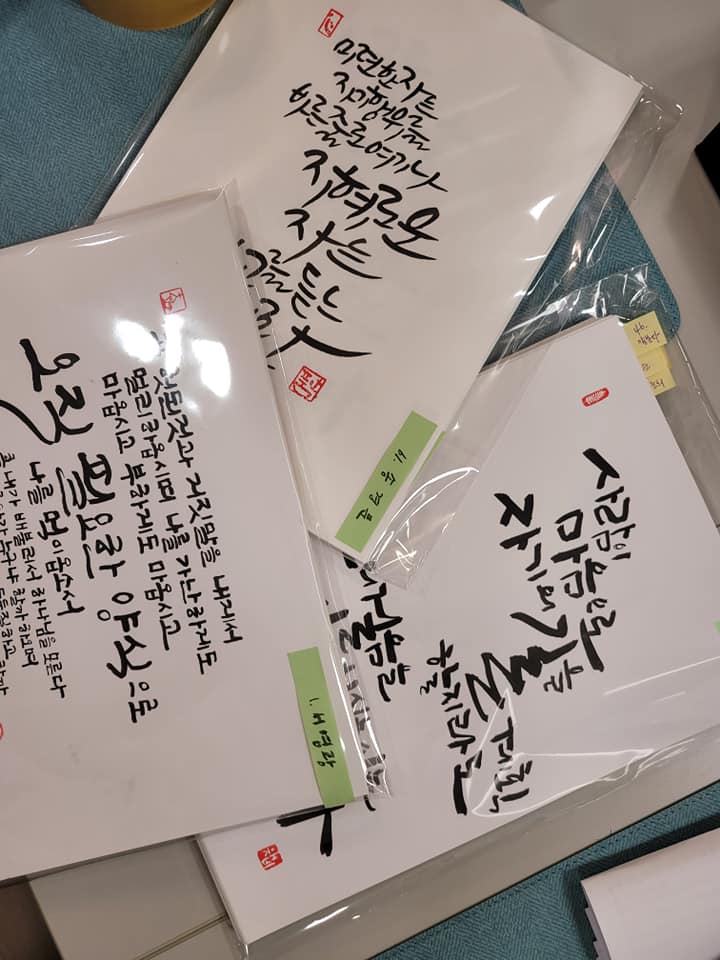 미련한자는
행위를
바른줄로여기나
지혜로운
자는
헛된것과 거짓말을 내게서
멀리하옵시며 나를 가난하게도
마옵시고 부하게도 마옵시고
오직 필요한 양식으로
나를 먹이옵소서
내가 배불러서 하나님을 모른다
사람이
마음으로
자기의 길을
계획
할지라도
걸음을
1. 서영랑
46.